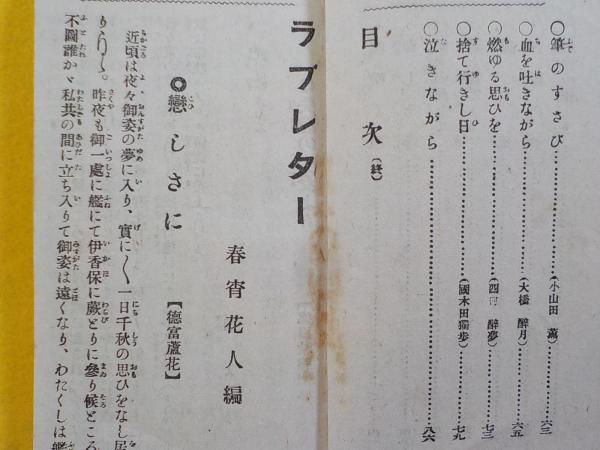 ○筆のすさび……(小山田 薫)……六三
○血を吐きながら……(大橋 醉月)……六五
○燃ゆる思ひを……(四 醉夢)……七三
○捨て行きし日……(國木田獨歩)……七九
○泣きながら……八六
目次(終)
ラブレター
春宵花人編
◎戀しさに 【德富蘆花】
近頃は夜々御姿の夢に入り、實に〳〵一日千秋の思ひをなし居
り〳〵。昨夜も御一處に艦にて伊香保に蕨とりに參り候ところ
不圖誰かゞ私共の間に立ち入りて御姿は遠くなり、わたくしは艦